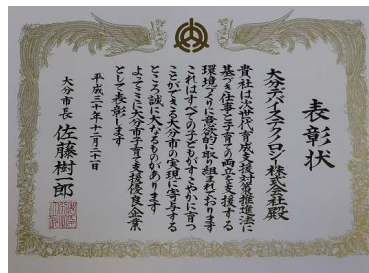 表彰状
大分デバイステクノロジー株式会社殿
貴社は次世代育成支援対策推進法に
基づき仕事と子育ての両立を支援する
環境づくりに意欲的に取り組まれております
これはすべての子どもがすこやかに育つ
ことができる大分市の実現に寄与する
ところ誠に大なるものがあります
よってここに大分市子育て支援優良企業
として表彰します
平成三十年十二月二十一日
大分市長 佐藤樹一郎